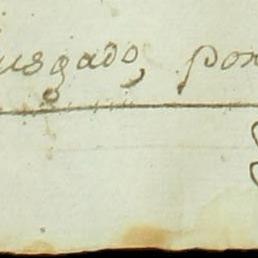 usgado, por